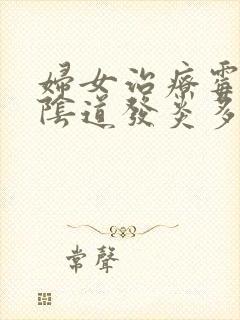 婦女治療霉
陰道發炎多
常聲